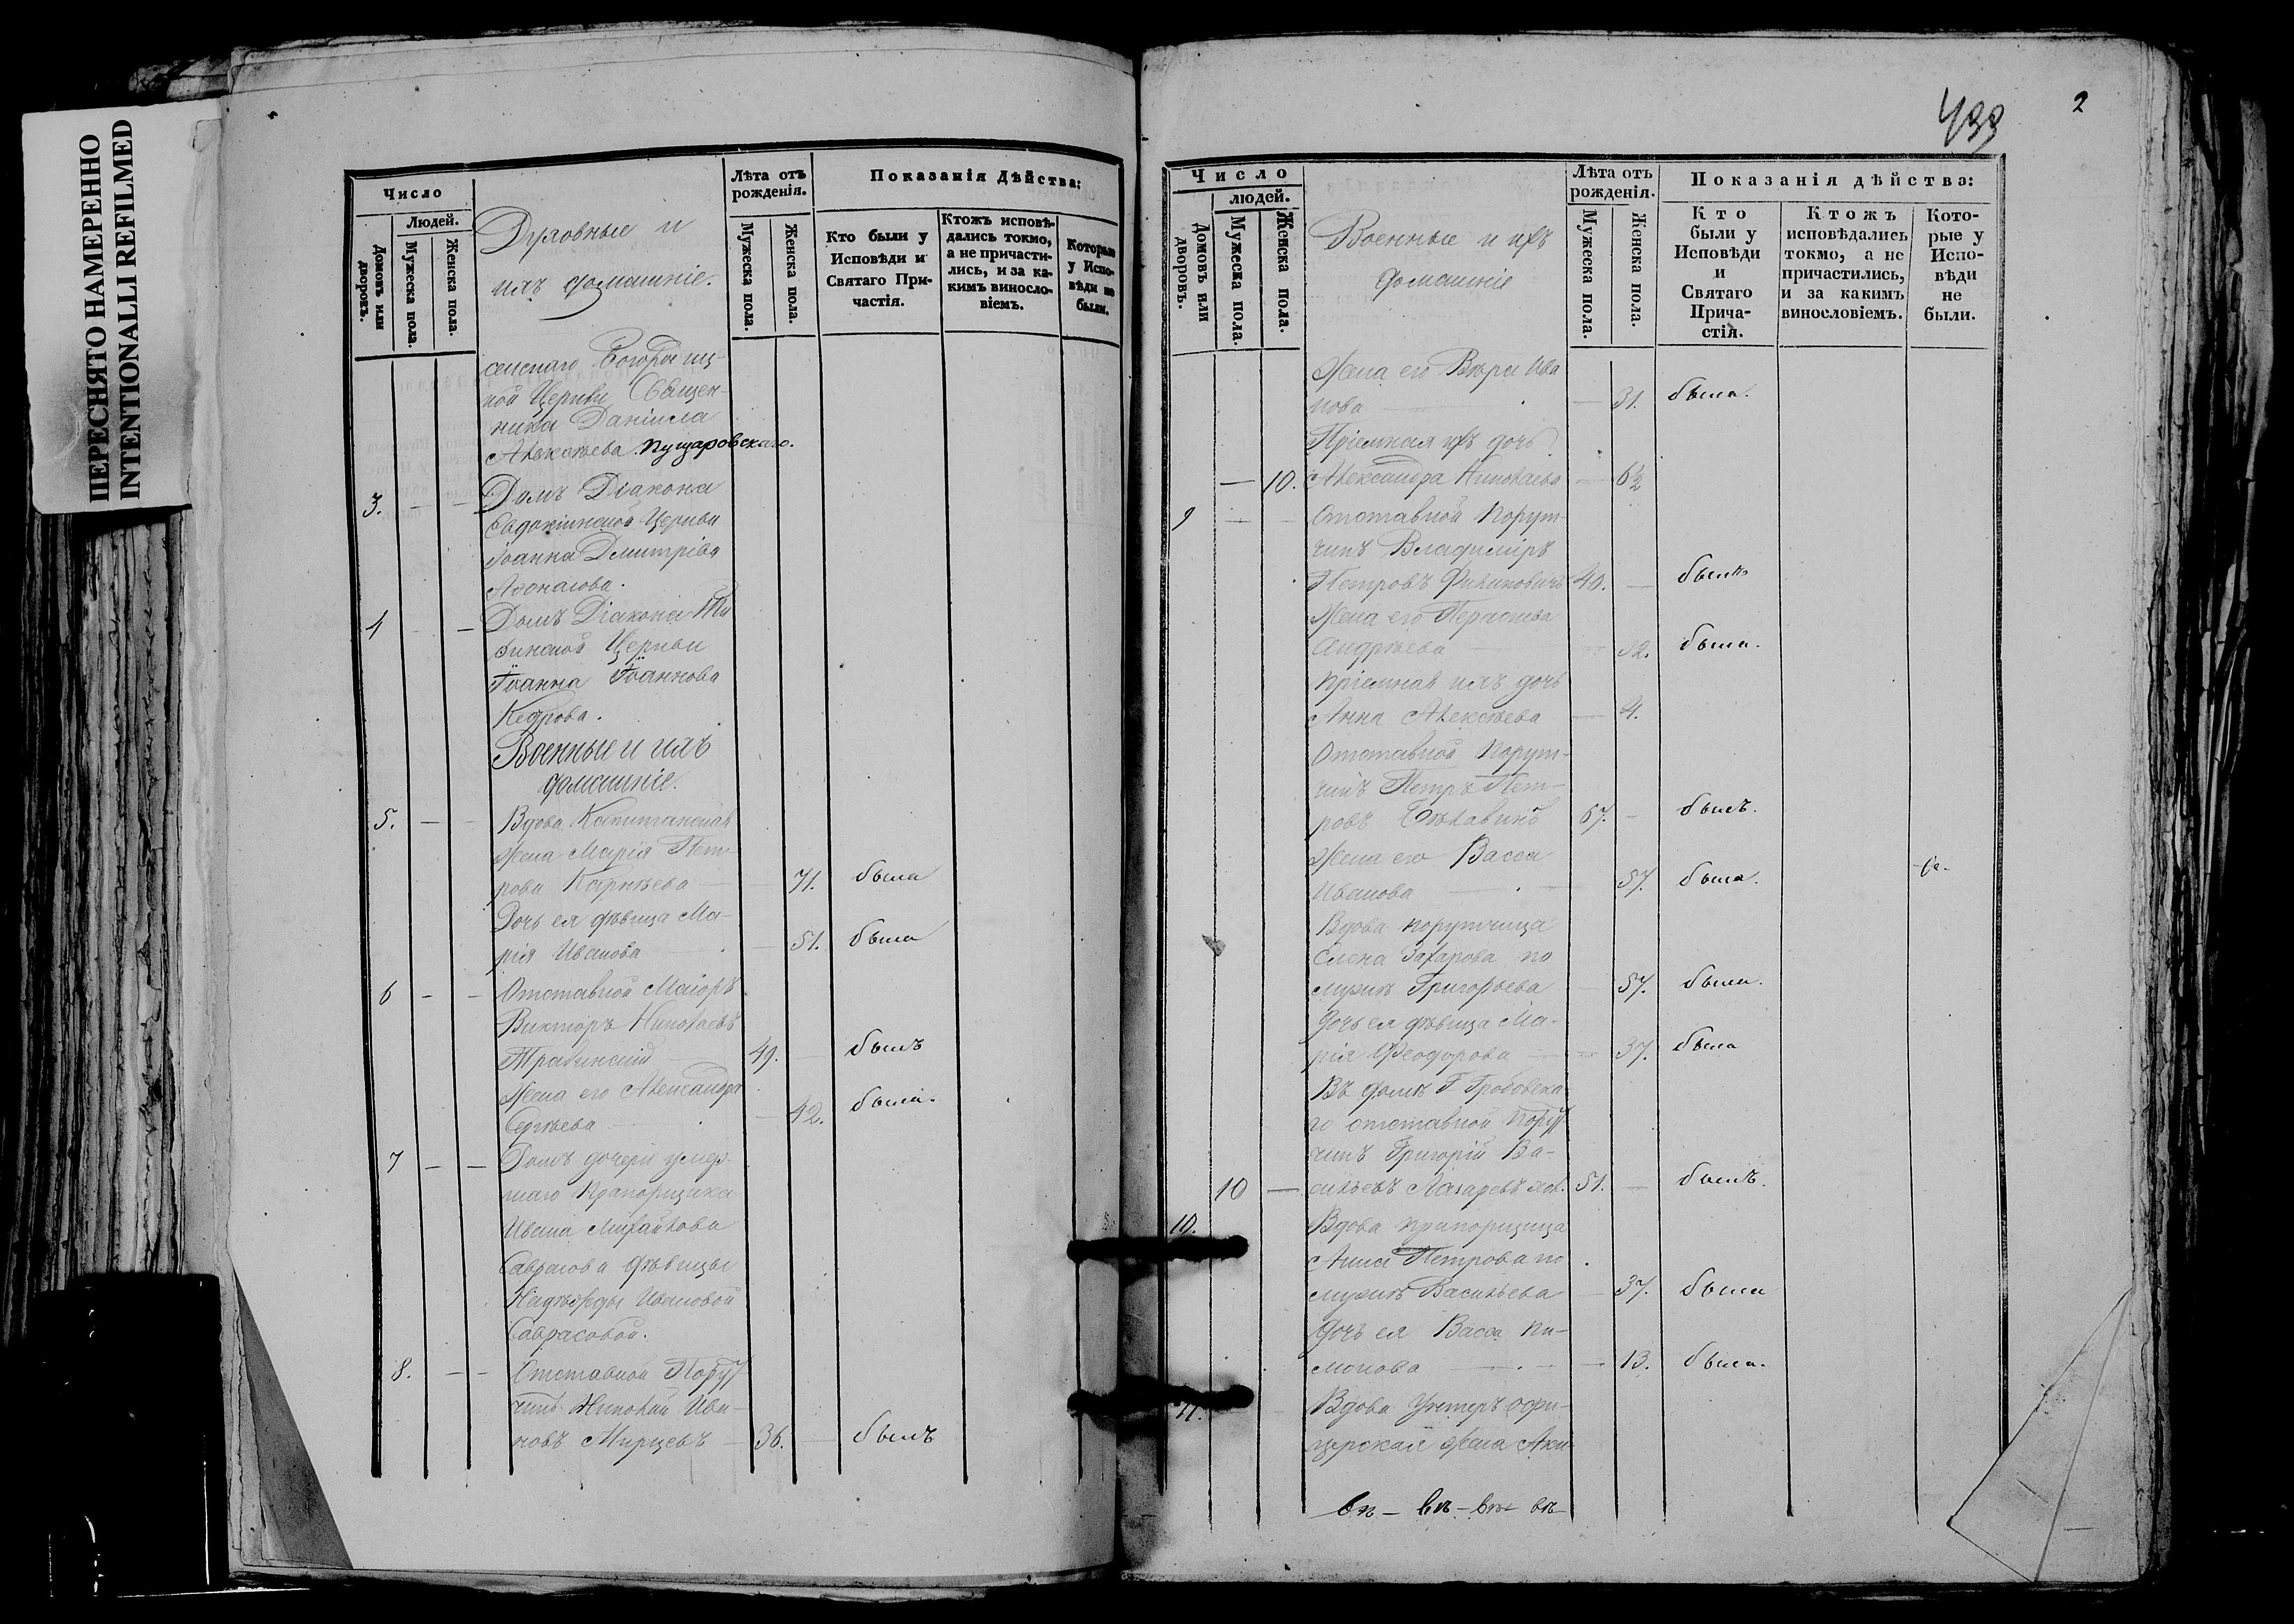 ПЕРЕСНЯТО НАМЕРЕННО
INTENTIONALLI REFILMED
Число
Людей.
Домовъ или дворовъ.
Мужеска пола.
Женска пола.
Духовные и
ихъ домашніе.
Лѣта отъ рожденія.
Мужеска пола.
Женска пола.
Показанія Дѣйства:
Кто были у Исповѣди и Святаго Причастія.
Ктожъ исповѣдались токмо, а не причастились, и за какимъ винословіемъ.
Которые у Исповѣди не были.
ной Церкви Священ-
ника Даніила
Алексѣева Пущаровскаго.
3. Домъ Діакона
Евдокіинской Церкви
Іоанна Дмитріева
Домъ Діакона
Церкви
Іоанна Іоаннова
Кедрова.
Военные и ихъ
домашніе.
5. Вдова Капитанская
жена Марія Пет-
рова Карнѣева 71. была
Дочь ея дѣвица Ма-
рія Иванова 51. была
6 Отставной Маіоръ
Викторъ Николаевъ
49. былъ
Жена его Александра
Сергѣева 42. была.
7 Домъ дочери умер-
шаго Прапорщика
Ивана Михайлова
Саврасова дѣвицы
Надѣжды Ивановой
Саврасовой.
8. Отставной Пору
чикъ Николай Ива-
новъ 36. былъ
439
2
Число
людей.
Домовъ или дворовъ.
Мужеска пола.
Женска пола.
Военные и ихъ
домашніе
Лѣта отъ рожденія.
Мужеска пола.
Женска пола.
Показанія дѣйства:
Кто были у Исповѣди и Святаго Причастія.
Ктожъ исповѣдались токмо, а не причастились, и за какимъ винословіемъ.
Которые у Исповѣди не были.
Жена его Вѣра Ива
нова 31. была.
Пріемная ихъ дочь
10. Александра Николаева 6½
9 Отставной Порут-
чикъ Владиміръ
Петровъ 40. былъ
Жена его
Андрѣева была.
Пріемная ихъ дочь
Анна Алексѣева 4.
Отставной Порут-
чикъ Петръ Пет-
ровъ 67. былъ.
Жена его Васса
Иванова 57. была.
Вдова порутчица
Елена Захарова по
мужѣ Григорьева 57. была.
Дочь ея дѣвица Ма-
рія Феодорова 37. была
Въ домѣ Г
го отставной Пору
чикъ Григорій Ва-
10 сильевъ 51. былъ.
10. Вдова прапорщица
Анна Петрова по
мужѣ Васильева 37. была
Дочь ея Васса
13. была.
11. Вдова Унтеръ офи-
церская жена